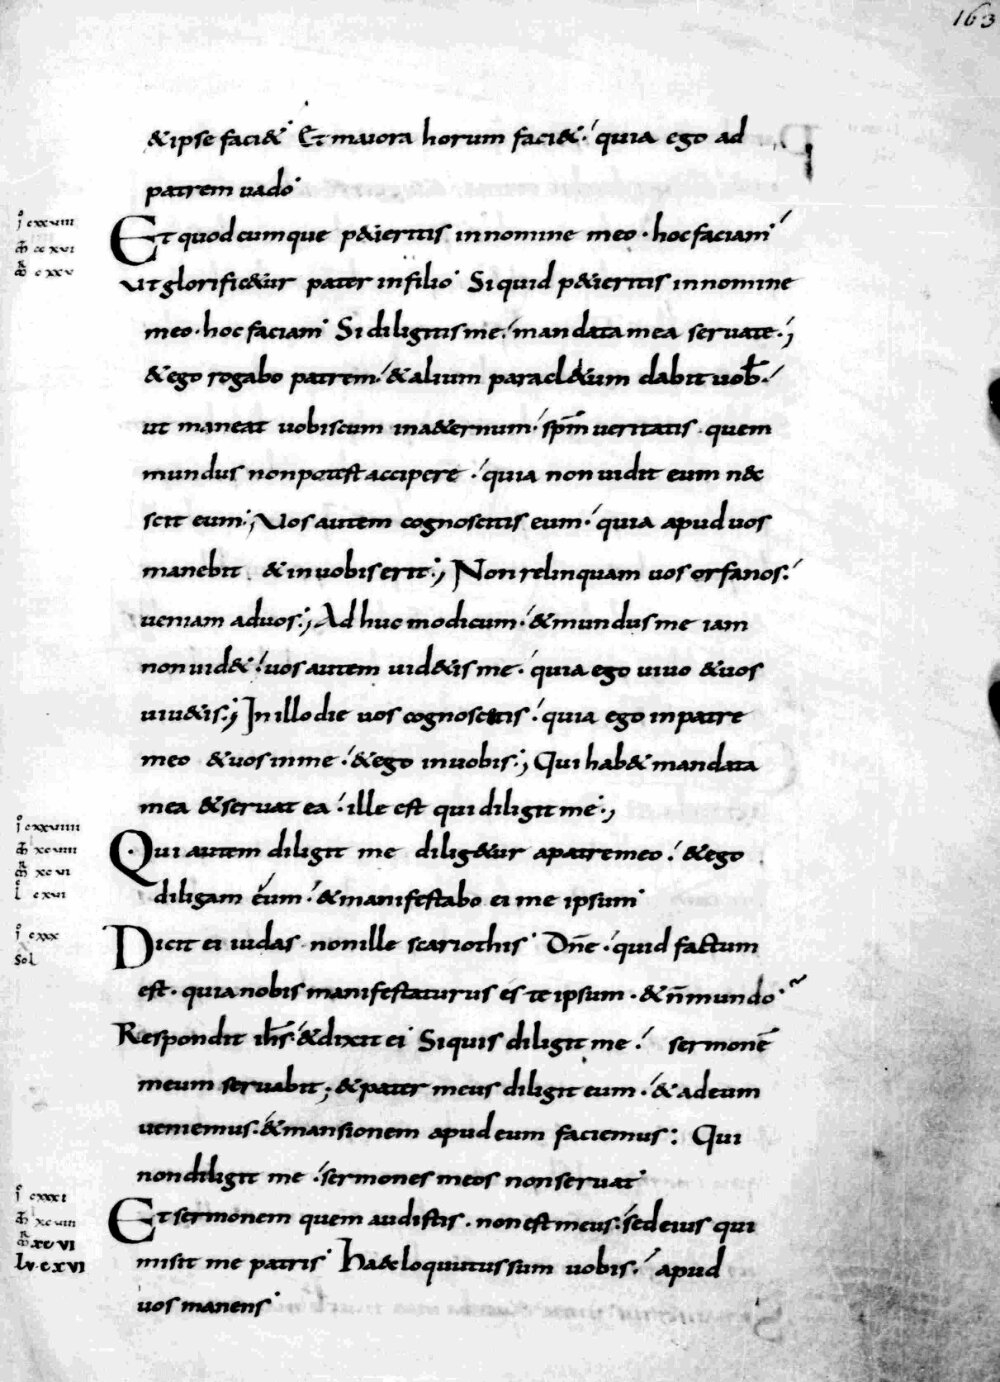 163
&ipse faci&· Et maiora horum faci&· quia ego ad
patrem uado·
j cxxviii
Et quodcumque p&ieritis innomine meo· hocfaciam·
m cc xvi
r cxxv
ut glorific&ur pater infilio· Siquid p&ieritis innomine
meo· hoc faciam· Si diligitis me· mandata mea seruate·;
&ego rogabo patrem· &alium paracl&um dabit uob̄·
ut maneat uobiscum ina&ernum· sp̄m ueritatis· quem
mundus nonpotest accipere· quia non uidit eum n&c
scit eum·; Uos autem cognoscitis eum· quia apud uos
manebit &inuobis erit·; Non relinquam uos orfanos·
ueniam aduos·; Ad huc modicum· &mundus me iam
non uid&· uos autem uid&is me· quia ego uiuo &uos
uiu&is·; In illo die uos cognoscetis· quia ego inpatre
meo &uos inme· &ego inuobis·; Qui hab& mandata
mea &seruat ea· ille est qui diligit me·;
j cxxviiii
Qui autem diligit me dilig&ur apatre meo· &ego
m xcviii
r xcvi
l cxvi
diligam eum· &manifestabo ei me ipsum·
j cxxx
Dicit ei iudas nonille scariothis· Dn̄e· quid factum
Sol
est· quia nobis manifestaturus es te ipsum· &n̄ mundo·
Respondit ih̄s· &dixit ei Siquis diligit me· sermonē
meum seruabit; &pater meus diligit eum· &adeum
ueniemus· &mansionem apud eum faciemus: Qui
non diligit me· sermones meos non seruat·
j cxxxi
Et sermonem quem audistis· non est meus· sed eius qui
m xcviii
r xcvi
misit me patris· Ha&c loquutus sum uobis· apud
lv cxvi
uos manens·